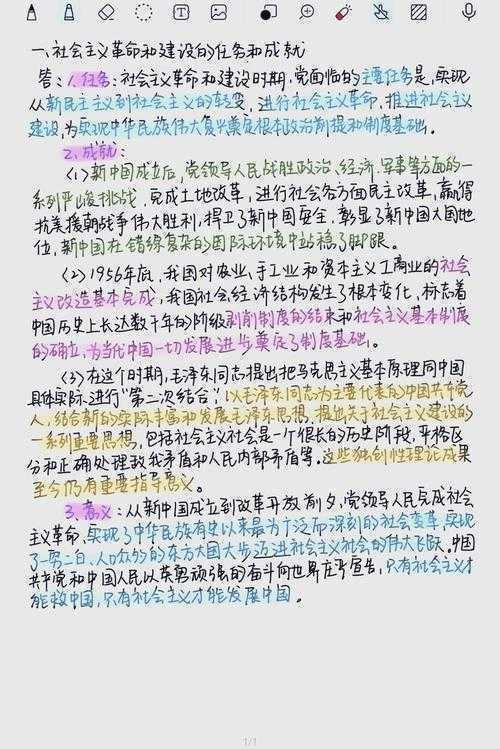 一、社会主义革命和建设的任务和成就
答:1.任务:社会主义革命和建设时期,党面临的主要任务是,实现
从新民主主义到社会主义的转变,进行社会主义革命,推进社会主义
建设,为实现中华民族伟大复兴奠定根本政治前提和制度基础。
2.成就:
(1)新中国成立后,党领导人民战胜政治、经济、军事等方面的一
系列严峻挑战,完成土地改革,进行社会各方面民主改革,赢得
抗美援朝战争伟大胜利,捍卫了新中国安全,彰显了新中国大国地
位,新中国在错综复杂的国际环境中站稳了脚跟。
(2)1956年底,我国对农业、手工业和资本主义工商业的社会
主义改造基本完成,我国社会经济结构发生了根本变化,标志着
中国历史上长达数千年的阶级剥削制度的结束和社会主义基本制度
的确立,为当代中国一切发展进步奠定了制度基础。
(3)在这个时期,毛泽东同志提出把马克思主义基本原理同中国
具体实际进行"第二次结合",以毛泽东同志为主要代表的中国共产党
人,结合新的实际丰富和发展毛泽东思想,提出关于社会主义建设的
一系列重要思想,包括社会主义社会是一个很长的历史阶段,严格区
分和正确处理敌我矛盾和人民内部矛盾等。这些独创性理论成果
至今仍有重要指导意义。
3.意义:从新中国成立到改革开放前夕,党领导人民完成社会
主义革命,实现了中华民族有史以来最为广泛而深刻的社会变革,实现
了一穷二白、人口众多的东方大国大步迈进社会主义社会的伟大飞跃。中国
共产党和中国人民以英勇顽强的奋斗向世界庄严宣告,只有社会主义才
能救中国,只有社会主义才能发展中国。
1/1